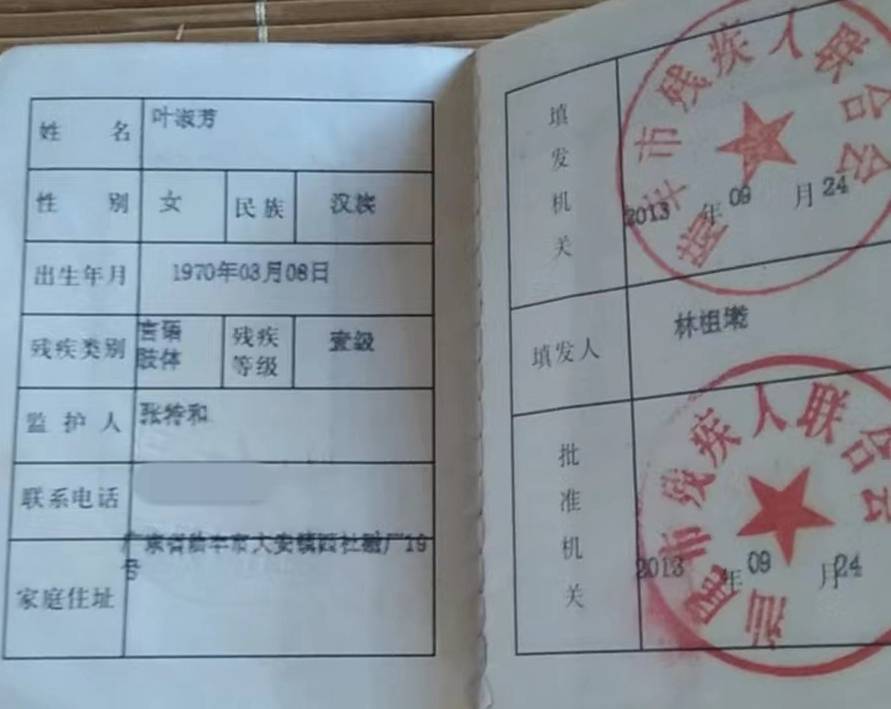 姓 名 叶淑芳
性 别 女 民族 汉族
出生年月 1970年03月08日
残疾类别 言语 肢体 残疾等级 壹级
监护人 张特和
联系电话
广东省陆丰市大安镇
19
号
家庭住址
填发机关
陆丰市残疾人联合会
2013 年 09 月 24
填发人 林祖
批准机关
汕尾市残疾人联合会
2013 年 09 月 24